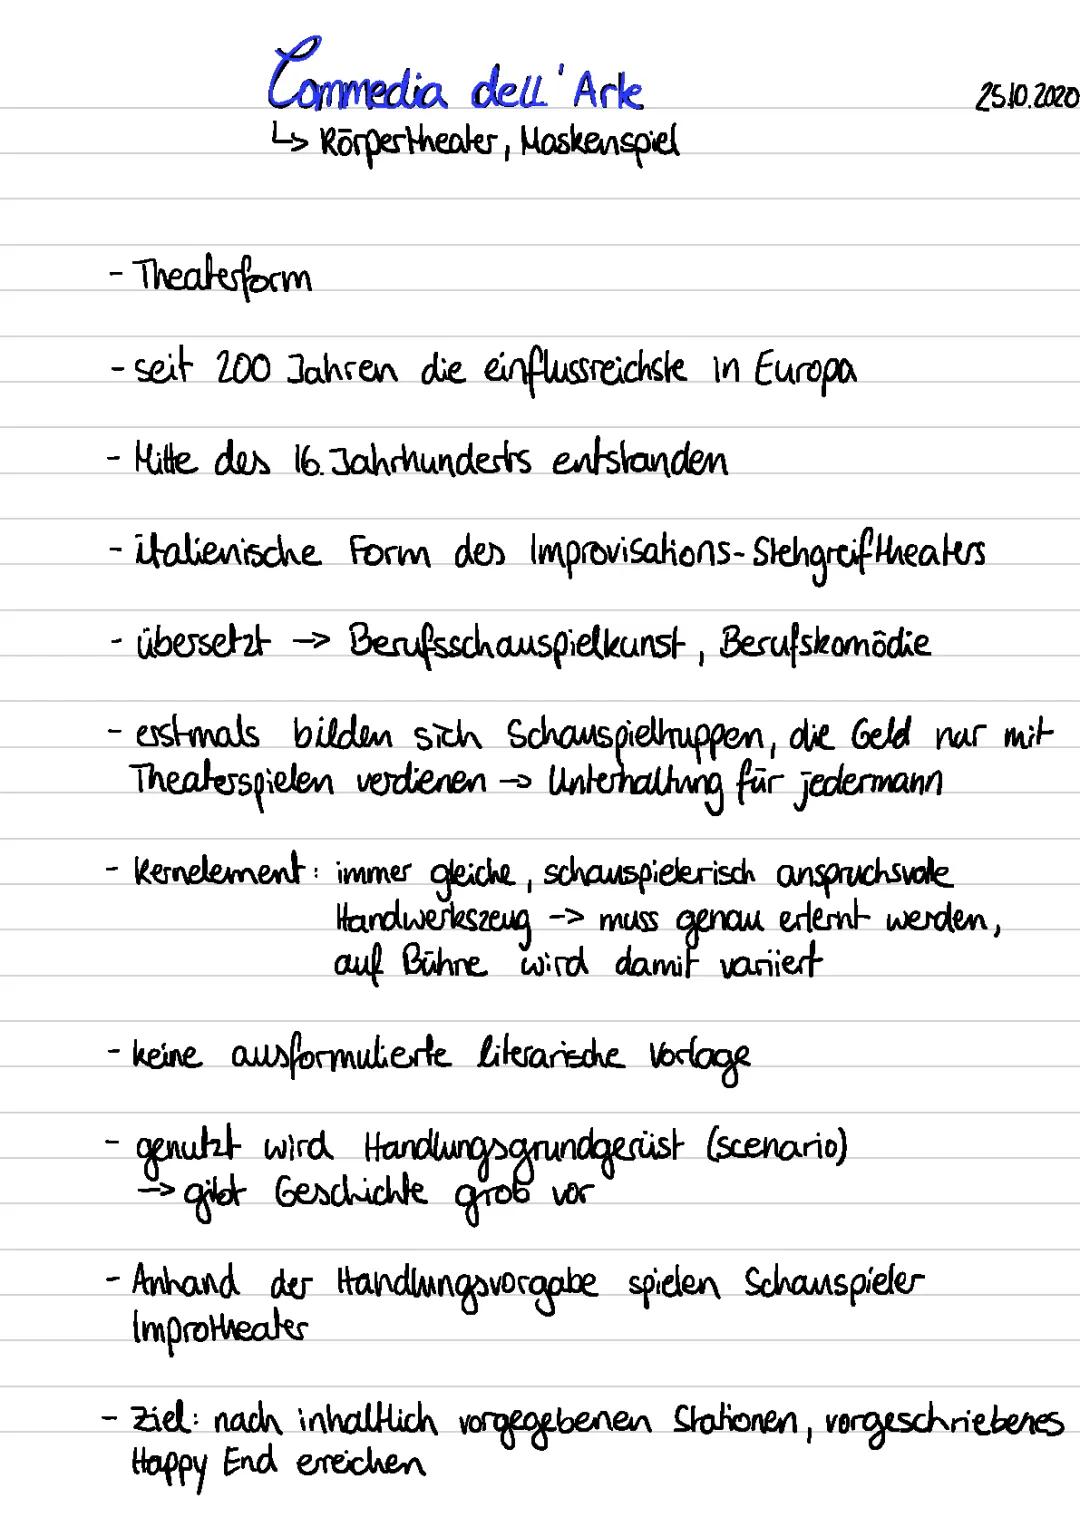 Commedia dell'Arte
25.10.2020
↳ Körpertheater, Maskenspiel
- Theaterform
- seit 200 Jahren die einflussreichste in Europa
- Mitte des 16. Jahrhunderts entstanden
- italienische Form des Improvisations-Stehgreiftheaters
- übersetzt → Berufsschauspielkunst, Berufskomödie
- erstmals bilden sich Schauspieltruppen, die Geld nur mit
Theaterspielen verdienen → Unterhaltung für jedermann
- Kernelement: immer gleiche, schauspielerisch anspruchsvolle
Handwerkszeug → muss genau erlernt werden,
auf Bühne wird damit variiert
- keine ausformulierte literarische Vorlage
- genutzt wird Handlungsgrundgerüst (scenario)
→ gibt Geschichte grob vor
- Anhand der Handlungsvorgabe spielen Schauspieler
Improtheater
- Ziel: nach inhaltlich vorgegebenen Stationen, vorgeschriebenes
Happy End erreichen